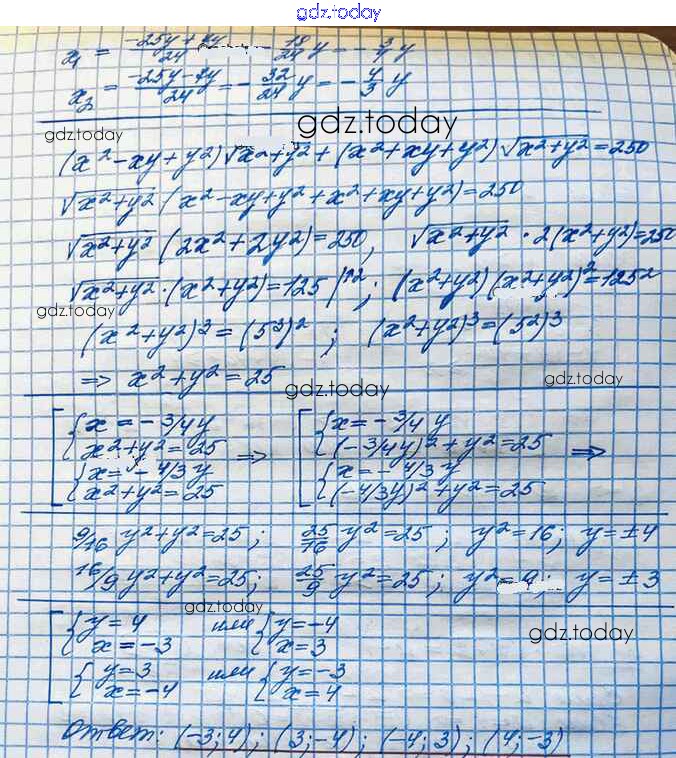 gdz.today
x₁ = (-25y + 7y)/24 = -18/24 y = -3/4 y
x₂ = (-25y - 7y)/24 = -32/24 y = -4/3 y
gdz.today
gdz.today
(x² - xy + y²)√x² + y² + (x² + xy + y²)√x² + y² = 250
√x² + y² (x² - xy + y² + x² + xy + y²) = 250
√x² + y² (2x² + 2y²) = 250, √x² + y² · 2(x² + y²) = 250
√x² + y² · (x² + y²) = 125 |^2; (x² + y²)(x² + y²)² = 125²
gdz.today
(x² + y²)³ = (5³)²; (x² + y²)³ = (5²)³
=> x² + y² = 25
gdz.today
gdz.today
[{x = -3/4 y [{x = -3/4 y
x² + y² = 25 => (-3/4 y)² + y² = 25 =>
{x = -4/3 y {x = -4/3 y
x² + y² = 25 (-4/3 y)² + y² = 25
9/16 y² + y² = 25; 25/16 y² = 25; y² = 16; y = ±4
16/9 y² + y² = 25; 25/9 y² = 25; y² = 9; y = ±3
gdz.today
[{y = 4 или {y = -4
x = -3 x = 3
gdz.today
{y = 3 или {y = -3
x = -4 x = 4
Ответ: (-3; 4); (3; -4); (-4; 3); (4; -3)